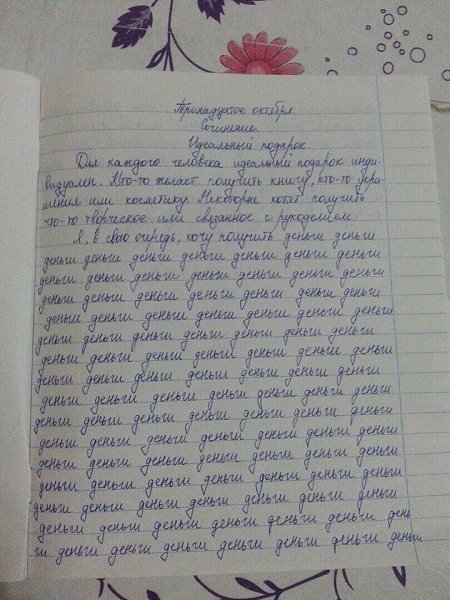 Тринадцатое октября.
Сочинение.
Идеальный подарок
Для каждого человека идеальный подарок инди-
видуален. Кто-то желает получить книгу, кто-то укра-
шение или косметику. Некоторые хотят получить
что-то творческое или связанное с рукоделием.
Я, в свою очередь, хочу получить деньги деньги
деньги деньги деньги деньги деньги деньги деньги
деньги деньги деньги деньги деньги деньги деньги
деньги деньги деньги деньги деньги деньги деньги
деньги деньги деньги деньги деньги деньги деньги
деньги деньги деньги деньги деньги деньги деньги
деньги деньги деньги деньги деньги деньги деньги
деньги деньги деньги деньги деньги деньги деньги
деньги деньги деньги деньги деньги деньги деньги
деньги деньги деньги деньги деньги деньги деньги
деньги деньги деньги деньги деньги деньги деньги
деньги деньги деньги деньги деньги деньги деньги
деньги деньги деньги деньги деньги деньги деньги
деньги деньги деньги деньги деньги деньги деньги
деньги деньги деньги деньги деньги деньги день
ги деньги деньги деньги деньги деньги деньги деньги